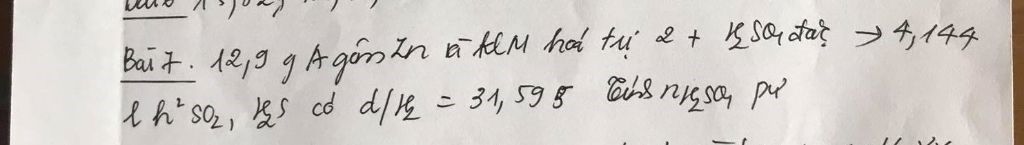 Bài 7. 12,9 g A gồm Zn và KLM hoá trị 2 + H2SO4 đặc → 4,144
l h² SO2, H2S có d/H2 = 31,595 Tính nH2SO4 pư